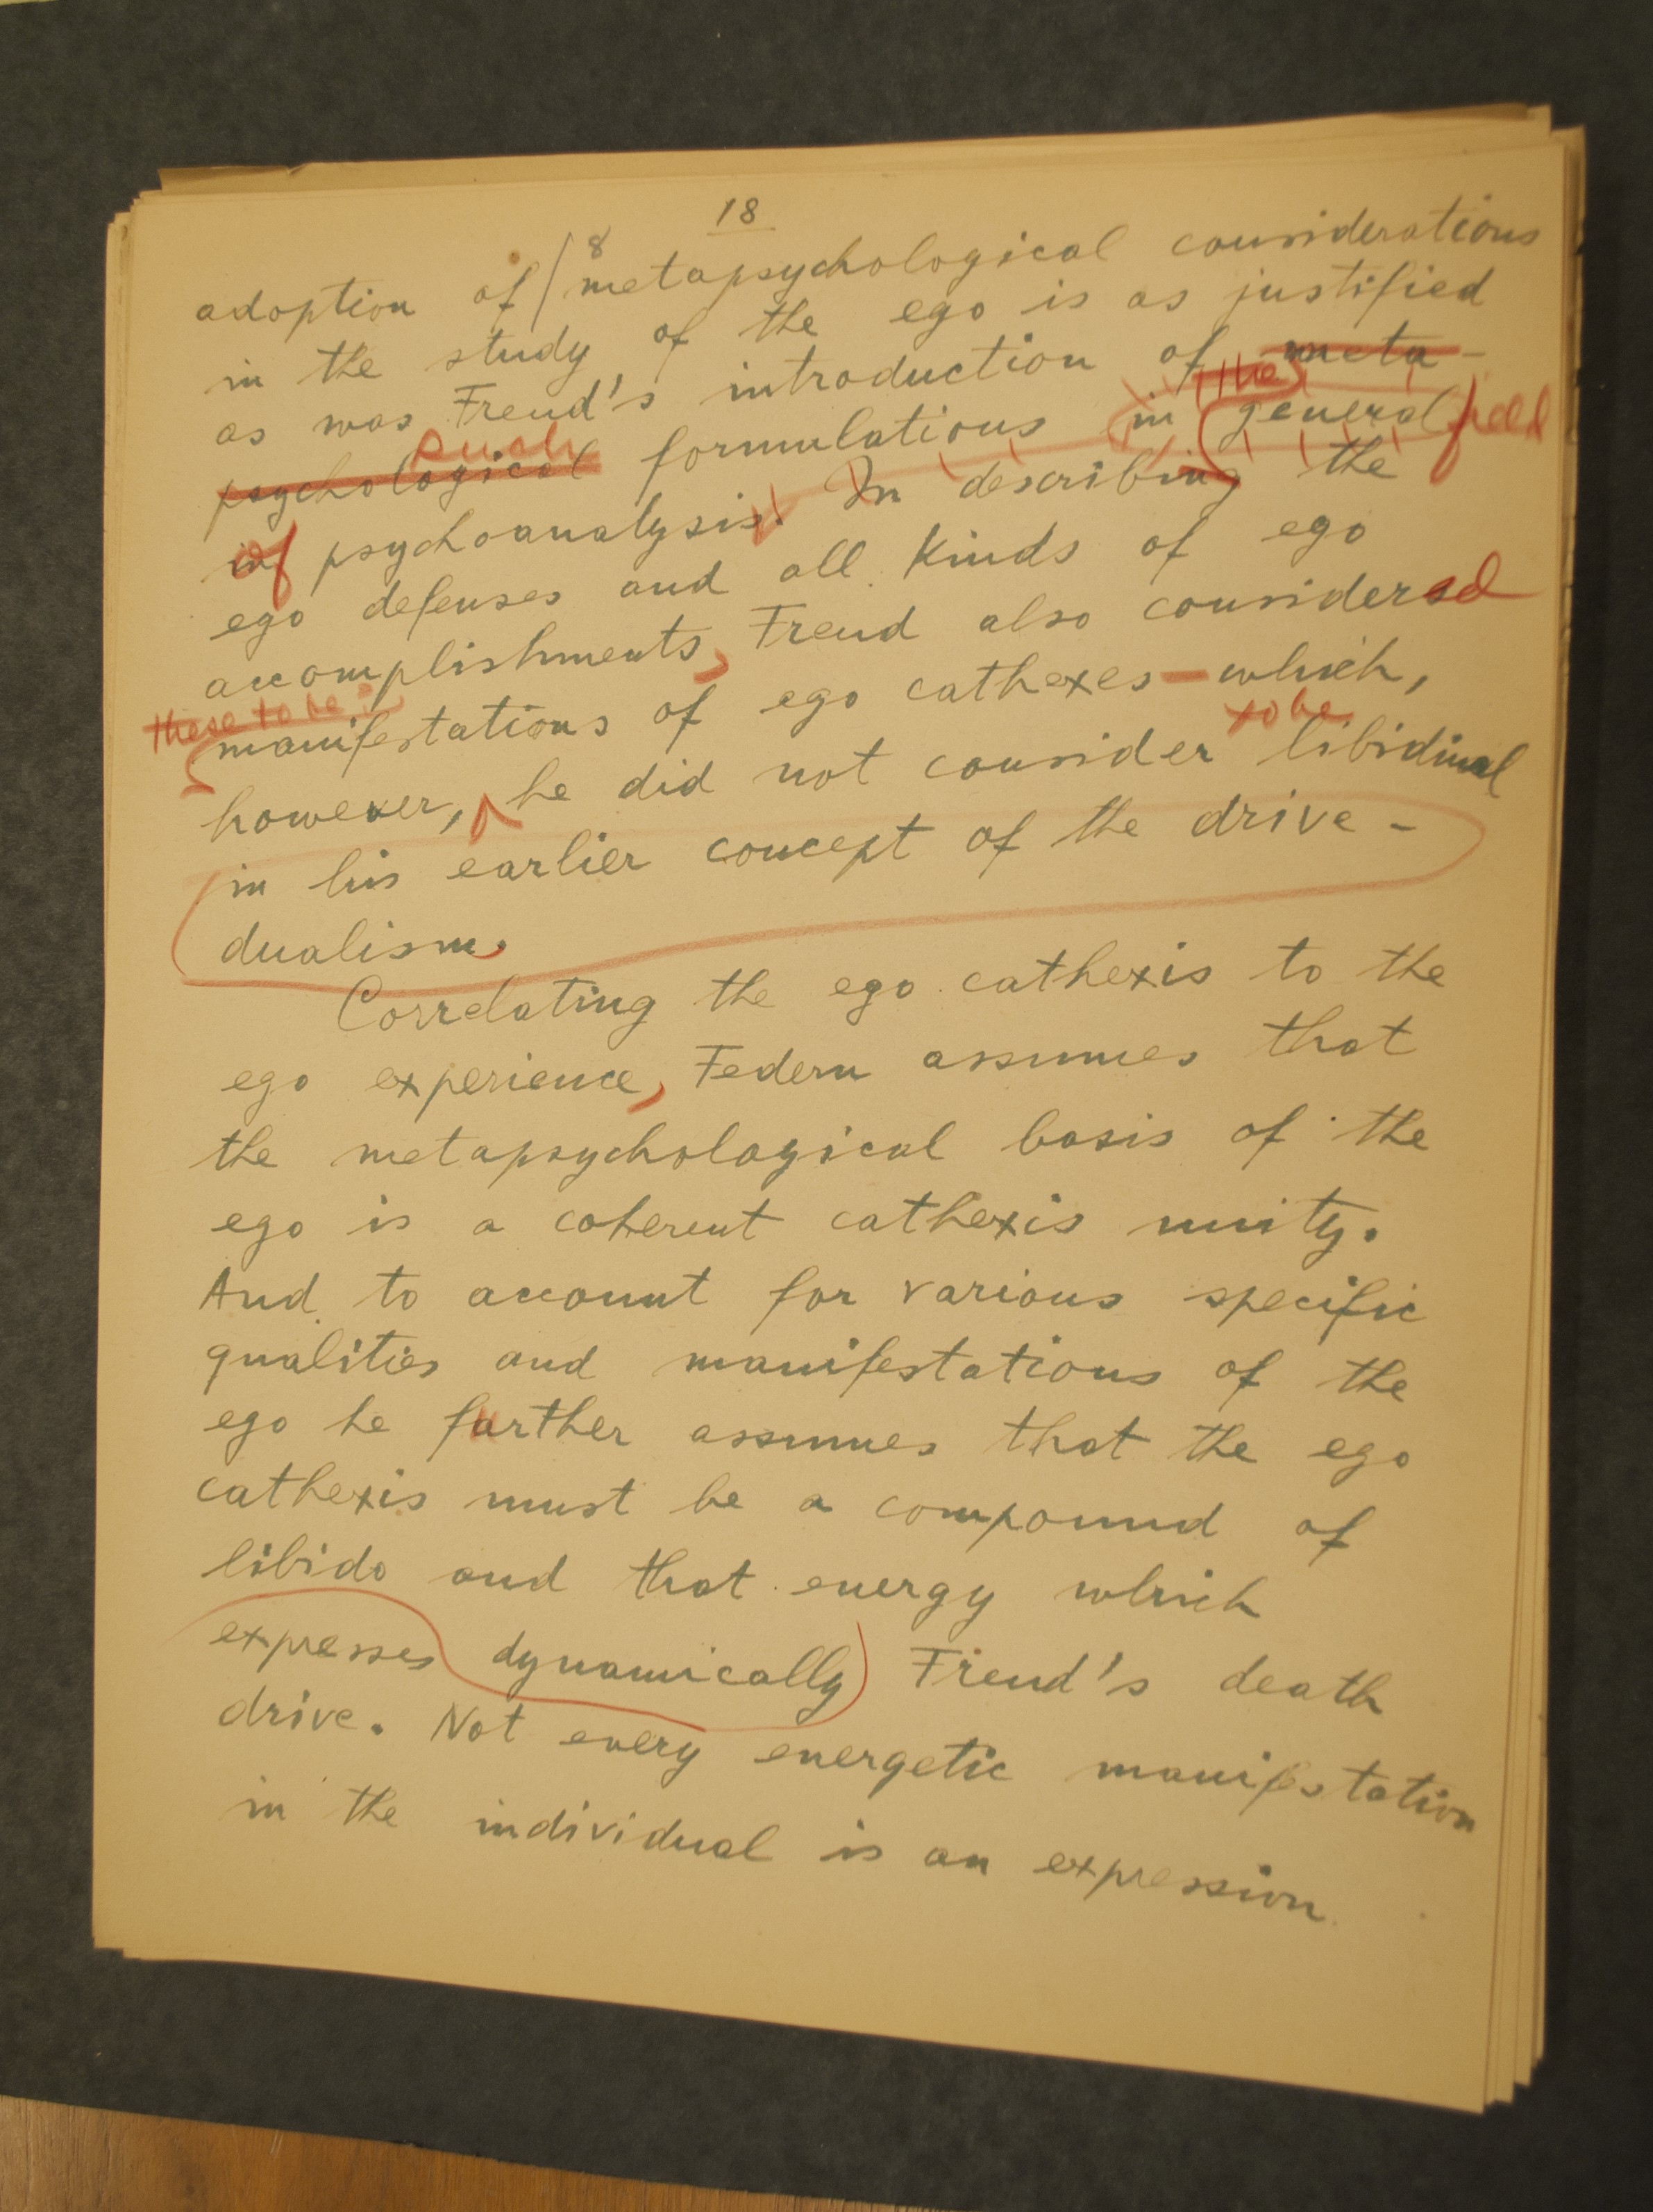 18
adoption of / 8 metapsychological considerations
in the study of the ego is as justified
as was Freud's introduction of meta-
the
psychological formulations in general field
such
in of psychoanalysis. In describing the
ego defenses and all kinds of ego
accomplishments, Freud also considered
these to be
manifestations of ego cathexes – which,
to be
however, he did not consider libidinal
in his earlier concept of the drive-
dualism.
Correlating the ego cathexis to the
ego experience, Federn assumes that
the metapsychological basis of the
ego is a coherent cathexis unity.
And to account for various specific
qualities and manifestations of the
ego he further assumes that the ego
cathexis must be a compound of
libido and that energy which
expresses dynamically Freud's death
drive. Not every energetic manifestation
in the individual is an expression